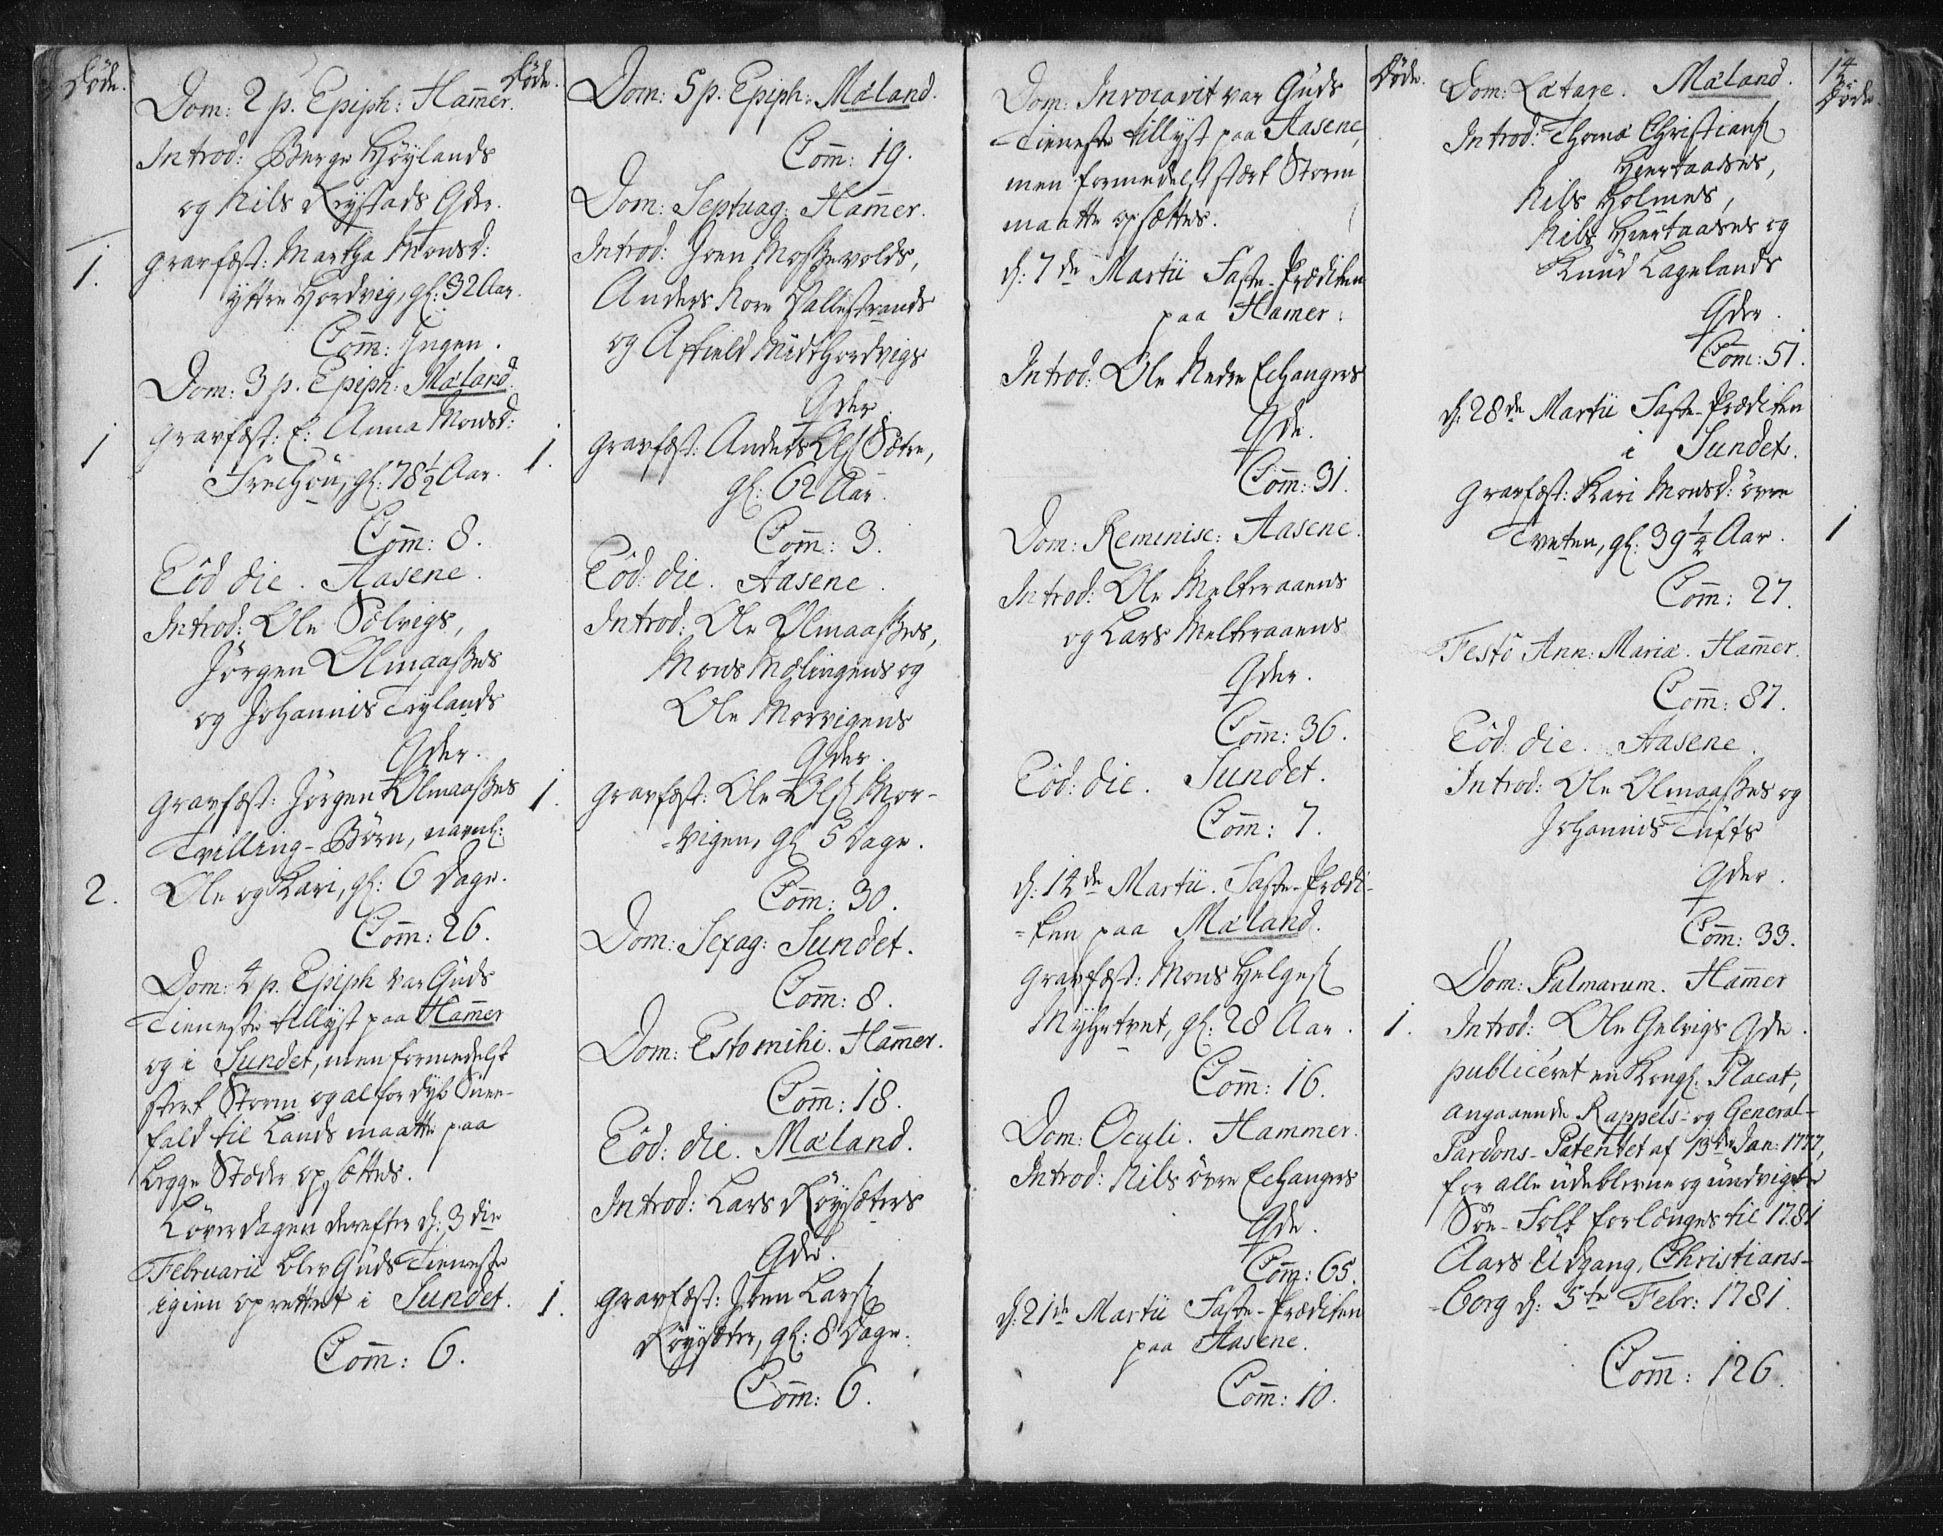 Døde.
Dom: 2 p. Epiph: Ham̄er.
Introd: Berge Höylands
og Nils Röystads Qder.
1. gravfæst: Martha Monsd:
yttre Hordvig, gl: 32 Aar.
Com̄: Ingen.
Dom: 3 p. Epiph: Mæland.
1 gravfæst: E: Anna Monsd:
gl: 78½ Aar.
Com̄: 8.
Eôd die. Aasene.
Introd: Ole Sælvigs,
Jörgen Olmaaskes
og Johannis Tylands
Qder.
gravfæst: Jörgen Olmaaskes
Tvilling-Börn, navnl:
2. Ole og Kari, gl: 6 Dage.
Com̄: 26.
Dom: 4 p. Epiph var Guds
Tieneste tillyst paa Ham̄er
og i Sundet, men formedelst
sterk Storm og alfor dyb Snee-
fald til Lands maatte paa
begge Stæder opsættes.
Löverdagen derefter d: 3die
Februarii blev Guds Tieneste
igien oprettet i Sundet.
Com̄: 6.
Døde.
Dom: 5 p. Epiph: Mæland.
Com̄: 19.
Dom: Septuag: Ham̄er.
Introd: Joen Moskevolds,
Anders Nore Vallestrands
og Affield Midthordvigs
Qder
1. gravfæst: Anders Ols: Sætre,
gl: 62 Aar.
Com̄: 3.
Eôd: die. Aasene.
Introd: Ole Olmaaskes,
Mons Mælingens og
Ole Morvigens
Qder.
1. gravfæst: Ole Ols: Mor-
=vigen, gl: 5 Dage.
Com̄: 30.
Dom: Sexag: Sundet.
Com̄: 8.
Dom: Esto mihi. Ham̄er.
Com̄: 18.
Eôd: die. Mæland.
Introd: Lars Röysæters
Qde.
1. gravfæst: Joen Lars:
Röysæter, gl: 8 Dage.
Com̄: 6.
Dom: Invocavit var Guds
Tieneste tillyst paa Aasene,
men formedelst stærk Storm
maatte opsættes.
d: 7de Martii Faste-Prædiken
paa Ham̄er.
Introd: Ole Nedre Echangers
Qde.
Com̄: 31.
Dom: Reminisc: Aasene.
Introd: Ole Melkeraaens
og Lars Melkeraaens
Qder.
Com̄: 36.
Eôd: die. Sundet.
Com̄: 7.
d: 14de Martii. Faste-Prædi-
=ken paa Mæland.
gravfæst: Mons Helges:
Myhrtvet, gl: 28 Aar.
Com̄: 16.
Dom: Oculi. Hammer.
Introd: Nils övre Echangers
Qde.
Com̄: 65.
d: 21de Martii Faste-Prædiken
paa Aasene.
Com̄: 10.
Døde.
1.
14
Døde.
Dom: Lætare. Mæland.
Introd: Thomæ Christians:
Hiertaases,
Nils Holmes,
Nils Hiertaases og
Knud Lagelands
Qder.
Com̄: 51.
d: 28de Martii Faste-Prædiken
i Sundet.
gravfæst: Kari Monsd: övre
Tveten, gl: 39¼ Aar. 1
Com̄: 27.
Festô Ann: Mariæ. Ham̄er.
Com̄: 87.
Eôd: die. Aasene.
Introd: Ole Olmaaskes og
Johannis Tufts
Qder.
Com̄: 33.
Dom: Palmarum. Ham̄er
Introd: Ole Gelvigs Qde.
publicéret en Kongl. Placat,
angaaende Rappels- og General-
Pardons-Patentet af 13de Jan: 1777,
for alle udeblevne og undvigte
Söe-Folk forlænges til 1781
Aars Udgang. Christians-
-borg d: 5te Febr: 1781.
Com̄: 126.